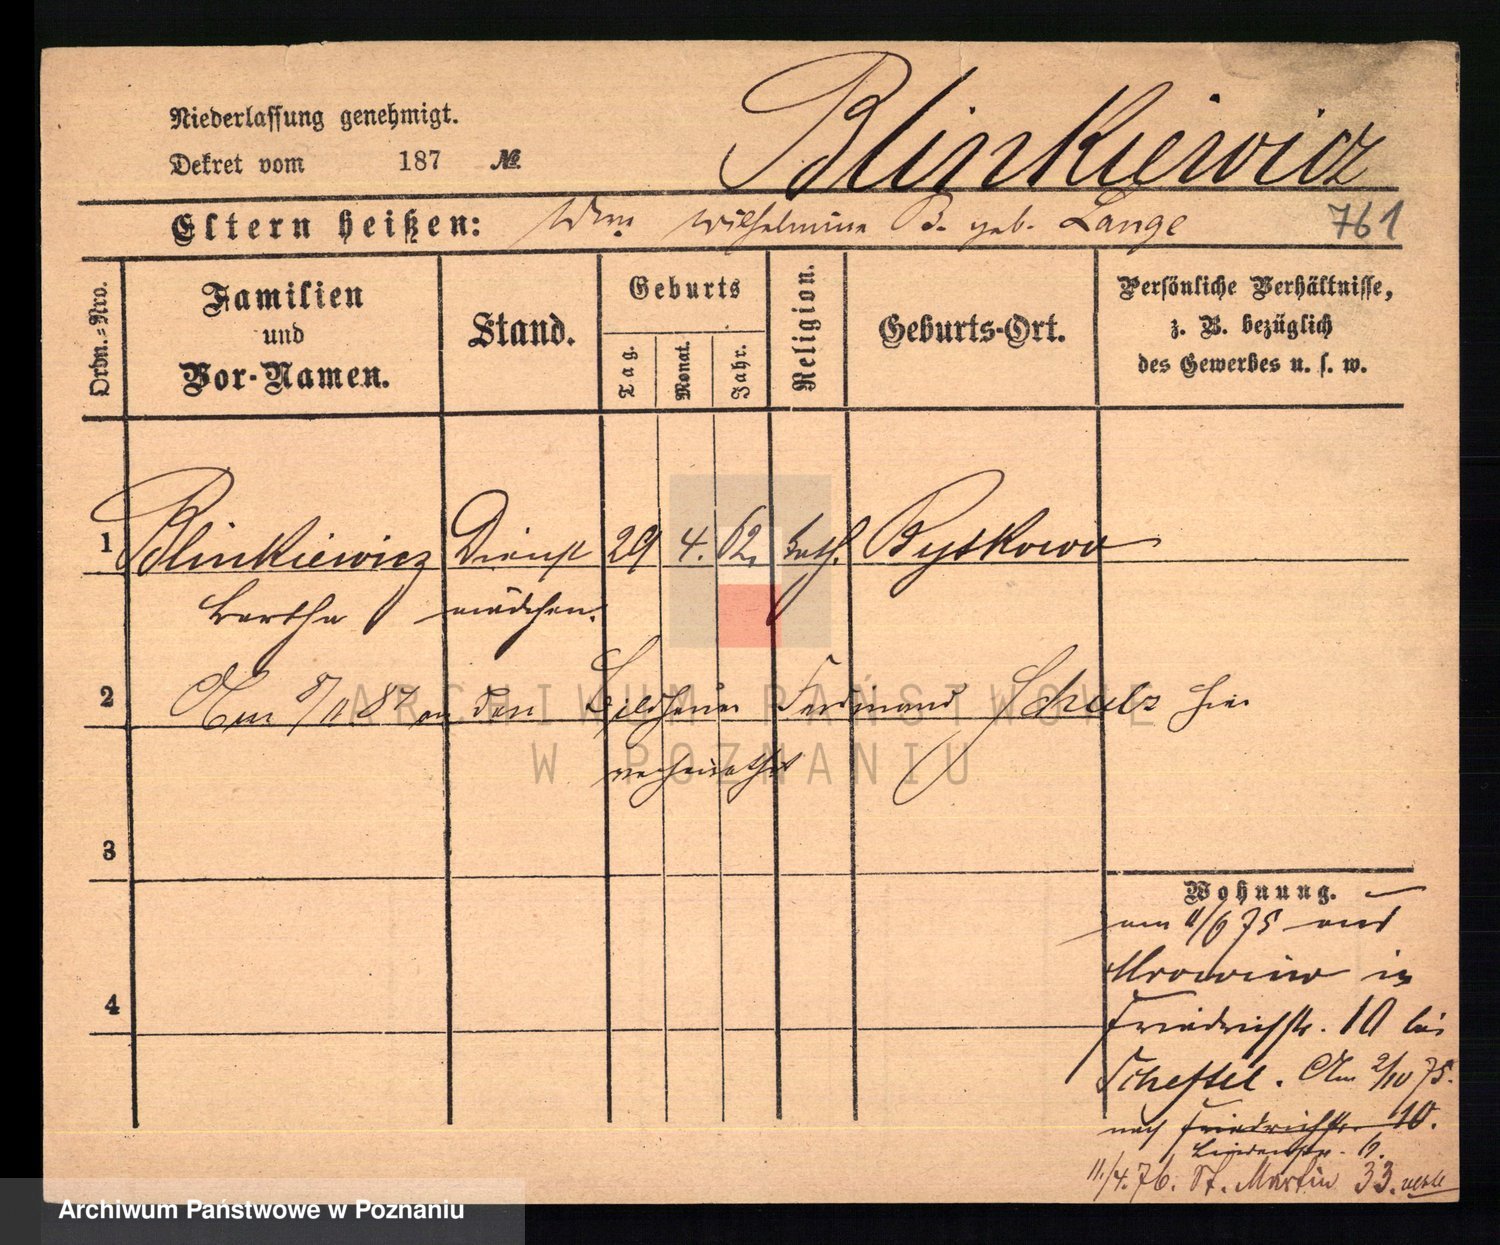 Blinkiewicz
Niederlassung genehmigt.
Dekret vom 187 №
Eltern heißen: Wwe. Wilhelmine B. geb. Lange 761
Ordn.-Nro.
Familien
und
Vor-Namen.
Stand.
Geburts
Tag.
Monat.
Jahr.
Religion.
Geburts-Ort.
Persönliche Verhältnisse,
z. B. bezüglich
des Gewerbes u. s. w.
1 Blinkiewicz Dienst 29 4. 62. kath. Pyskowo
Bertha mädchen.
2 Am 8/11 87 an den Bildhauer Ferdinand Schulz hier
verheirathet
ARCHIWUM PAŃSTWOWE
W POZNANIU
3
Wohnung.
am 11/6 75 aus
Mrowino in
4
Friedrichstr. 10 bei
Scheffel. Am 2/10 75.
nach Friedrichstr. 10.
Lindenstr. 6.
11./4. 76. St. Martin 33.
Archiwum Państwowe w Poznaniu